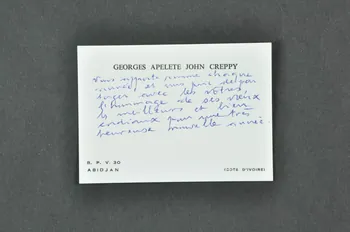 GEORGES APELETE JOHN CREPPY
Vous apporte comme chaque
année, et vous prie de par-
tager avec les vôtres,
l'hommage de ses vœux
les meilleurs et bien
cordiaux pour une très
heureuse nouvelle année.
B. P. V. 30
ABIDJAN
(COTE D'IVOIRE)